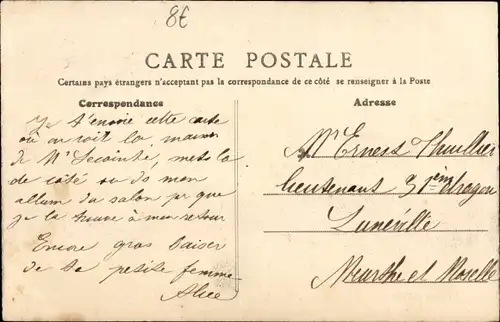 8€
CARTE POSTALE
Certains pays étrangers n'acceptant pas la correspondance de ce côté se renseigner à la Poste
Correspondance
Adresse
Je t'envoie cette carte
où on voit la maison
de Mr Lecointé, mets la
de côté ou de mon
album du salon pr que
je la trouve à mon retour
Encore gros baiser
de ta petite femme
Alice
Mr Ernest Thuillier
lieutenant 31em dragon
Lunéville
Meurthe et Moselle